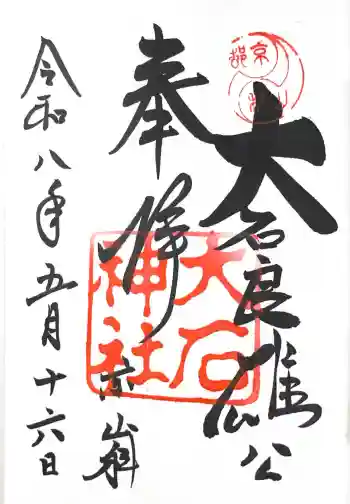 大石良雄公
奉拝
山科
大石
神社
令和八年五月十六日